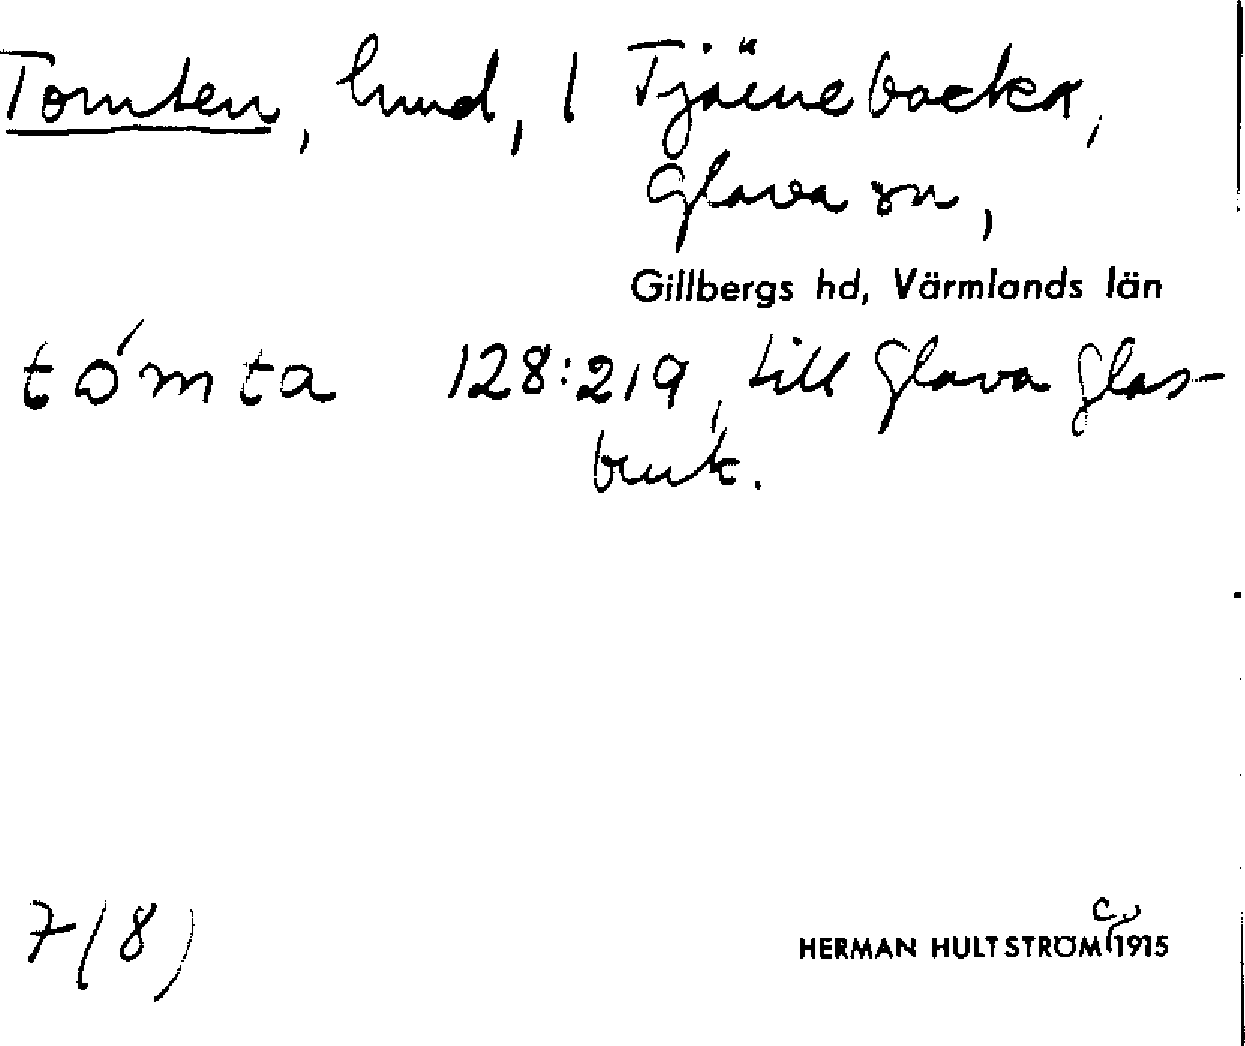 Tomten, hmd, 1 Tjärnebacka,
Glava sn,
Gillbergs hd, Värmlands län
tómta 128:219, till Glava glas-
bruk.
7(8)
c.
HERMAN HULTSTRÖM 1915